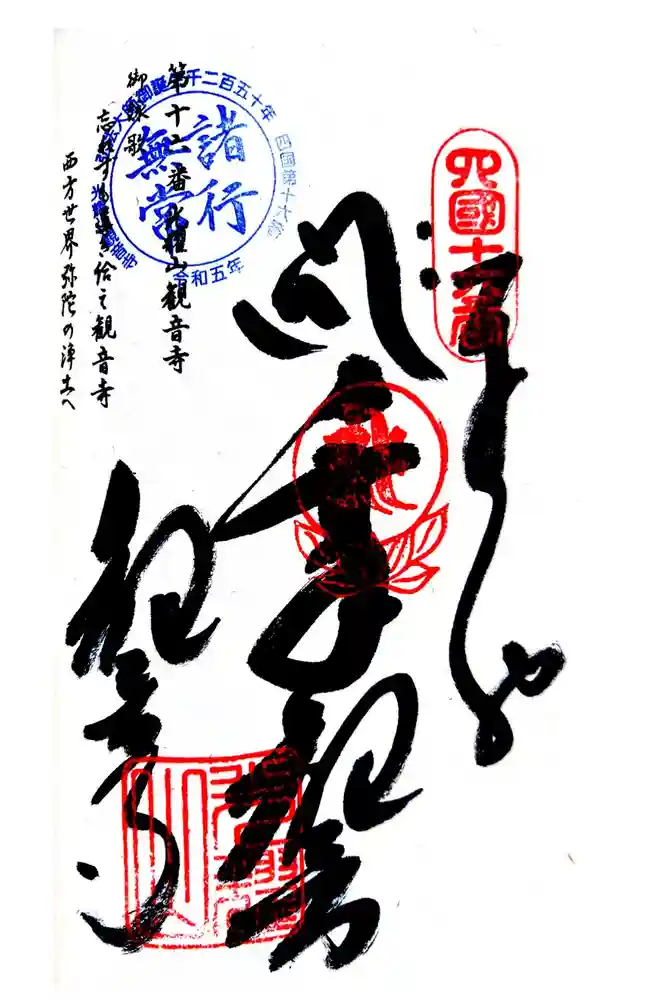 四國十六番
奉拝
千手観音
観音寺
弘法大師御誕生千二百五十年
四国第十六番
諸行
無常
令和五年
第十六番光耀山観音寺
御詠歌
忘れずも導き給え観音寺
西方世界弥陀の浄土へ